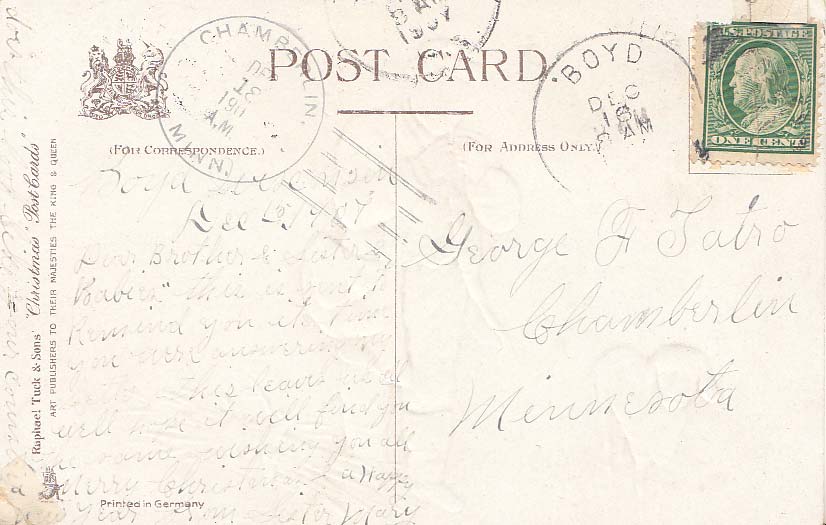 POST CARD.
(FOR CORRESPONDENCE.)
(FOR ADDRESS ONLY.)
CHAMBERLIN,
DEC
18
A.M.
MINN.
BOYD
DEC
18
AM
U.S. POSTAGE
ONE CENT
Boyd Wisconsin
Dec 15 1907
Dear Brother & Sister &
Babies" this is just to
Remind you its time
you were answering my
letter this leaves us all
well hope it will find you
the same wishing you all
a Merry Christmas & a Happy
New Year from Sister Mary
George F Tatro
Chamberlin
Minnesota
Raphael Tuck & Sons' "Christmas" Post Cards
ART PUBLISHERS TO THEIR MAJESTIES THE KING & QUEEN
Printed in Germany